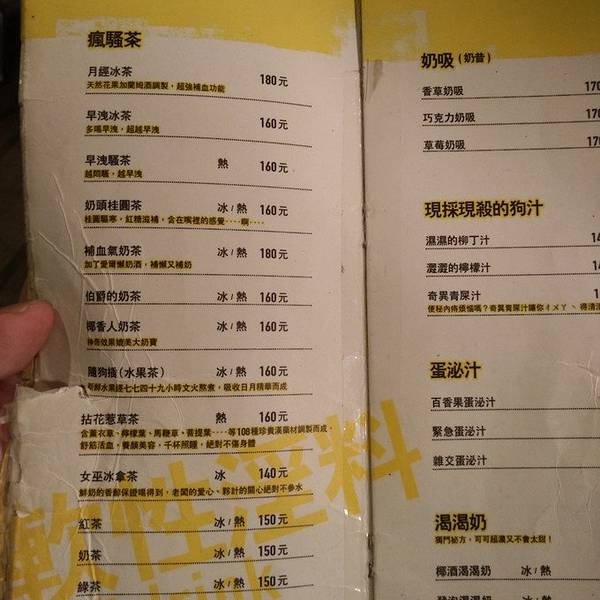 瘋騷茶
月經冰茶 180元
天然花果加蘭姆酒調製，超強補血功能
早洩冰茶 160元
多喝早洩，超越早洩
早洩騷茶 熱 160元
越悶騷，越早洩
奶頭桂圓茶 冰/熱 160元
桂圓驅寒，紅糖滋補，含在嘴裡的感覺……啊……
補血氣奶茶 冰/熱 180元
加了愛爾懶奶酒，補懶又補奶
伯爵的奶茶 冰/熱 160元
椰香人奶茶 冰/熱 160元
神奇效果媲美大奶寶
隨狗插(水果茶) 冰/熱 160元
新鮮水果經七七四十九小時文火熬煮，吸收日月精華而成
拈花惹草茶 熱 160元
含薰衣草、檸檬葉、馬鞭草、菩提葉……等108種珍貴漢藥材調製而成，
舒筋活血，養顏美容，千杯照睡，絕對不傷身體
女巫冰拿茶 冰 140元
鮮奶的香醇保證喝得到，老闆的愛心、夥計的關心絕對不參水
紅茶 冰/熱 150元
奶茶 冰/熱 150元
綠茶 冰/熱 150元
軟性淫料
奶吸(奶昔)
香草奶吸 170
巧克力奶吸 170
草莓奶吸 170
現採現殺的狗汁
濕濕的柳丁汁
澀澀的檸檬汁
奇異青屎汁
便秘內痔煩惱嗎？奇異青屎汁讓你ㄔㄨㄚヽ得清
蛋泌汁
百香果蛋泌汁
緊急蛋泌汁
雜交蛋泌汁
渴渴奶
獨門祕方，可可超濃又不會太甜！
椰酒渴渴奶 冰/熱